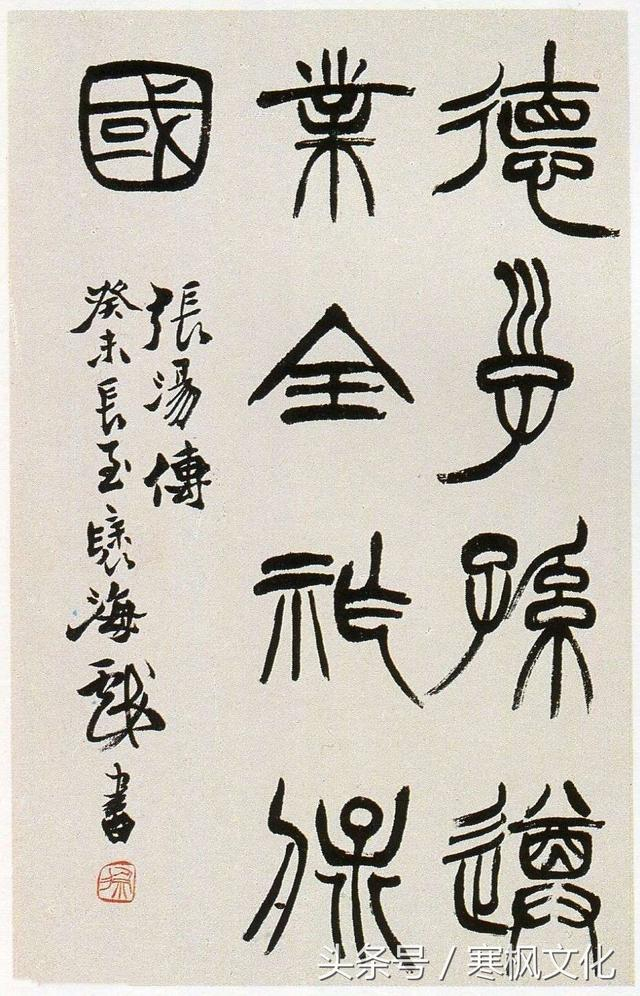 德子孫遵
業全祚保
國
張湯傳
癸未長至海戲書
头条号 / 寒枫文化